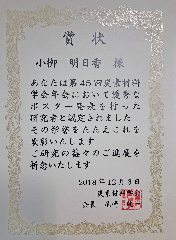 賞状
小柳 明日香 様
あなたは第45回炭素材料
学会年会において優秀な
ポスター発表を行った
研究者と認定されました
その栄誉をたたえこれを
表彰いたします
ご研究の益々のご進展を
祈念いたします
2018年12月6日
炭素材料学会
会長